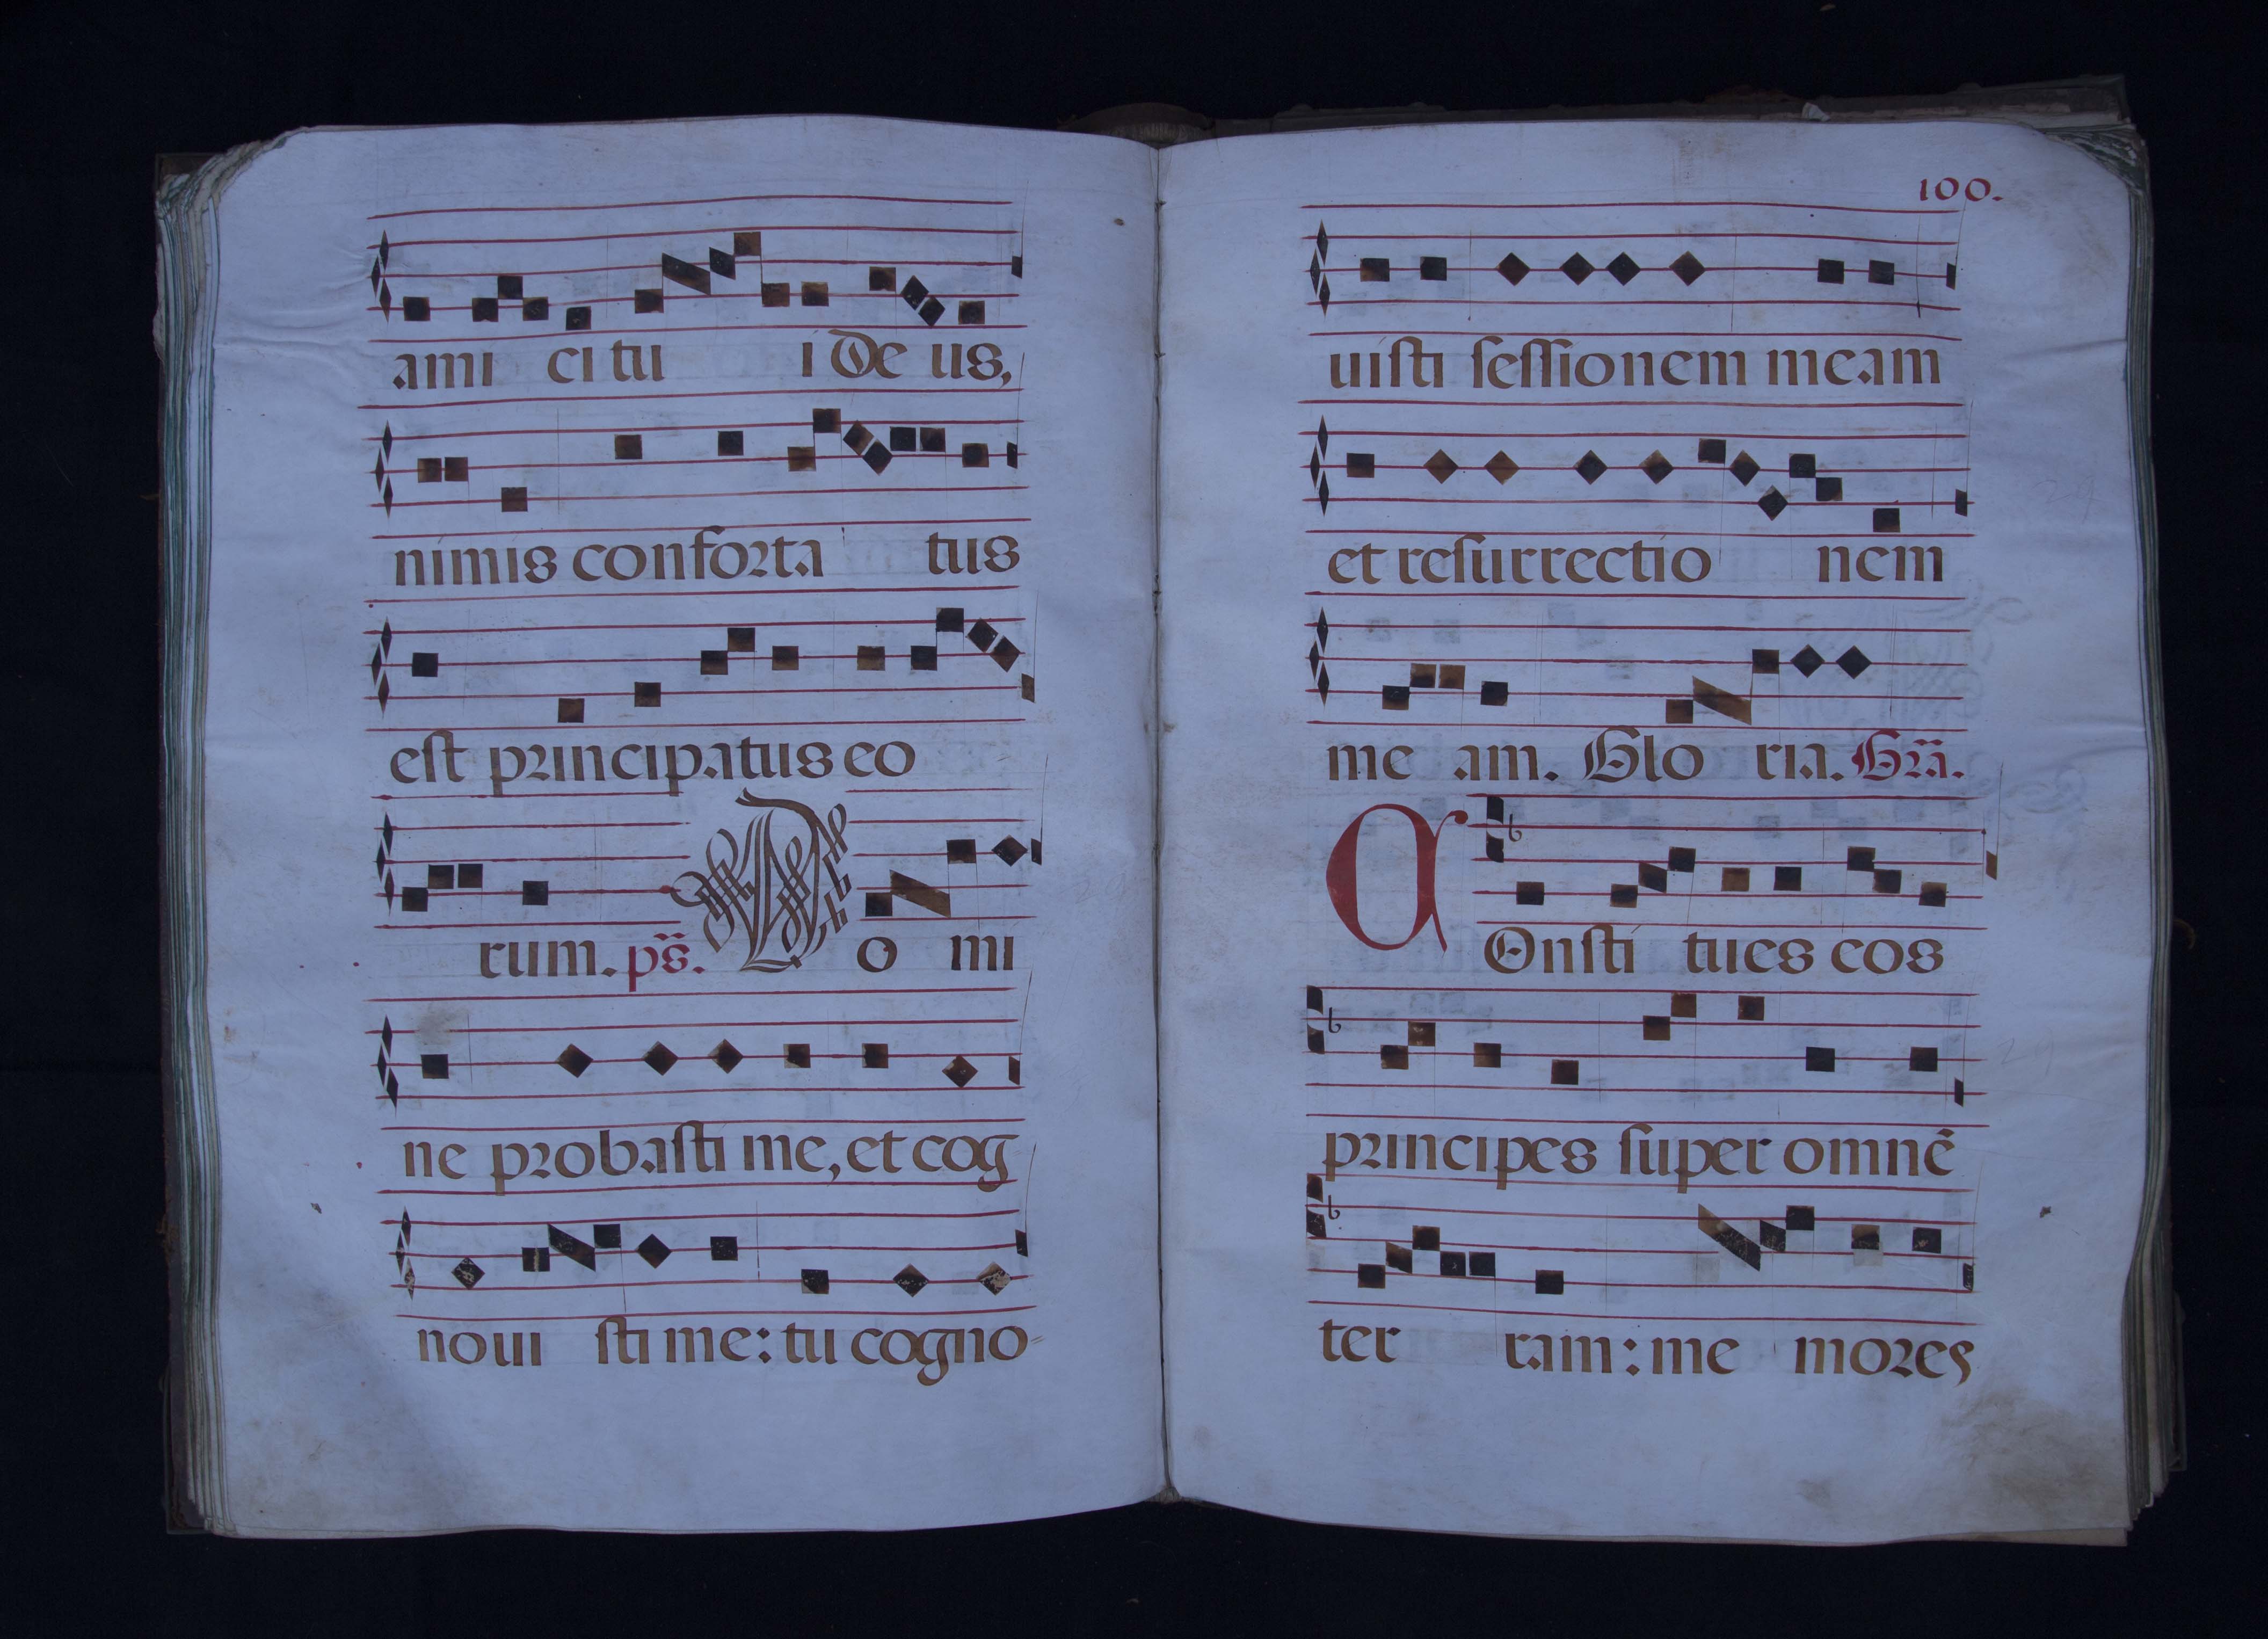 ami ci tu i De us,
nimis conforta tus
est principatus eo
rum. ps. D o mi
ne probasti me, et cog
noui sti me: tu cogno-
100.
uisti sessionem meam
et resurrectio nem
me am. Glo ria. Gra.
C Onsti tues eos
principes super omnẽ
ter ram: me mores